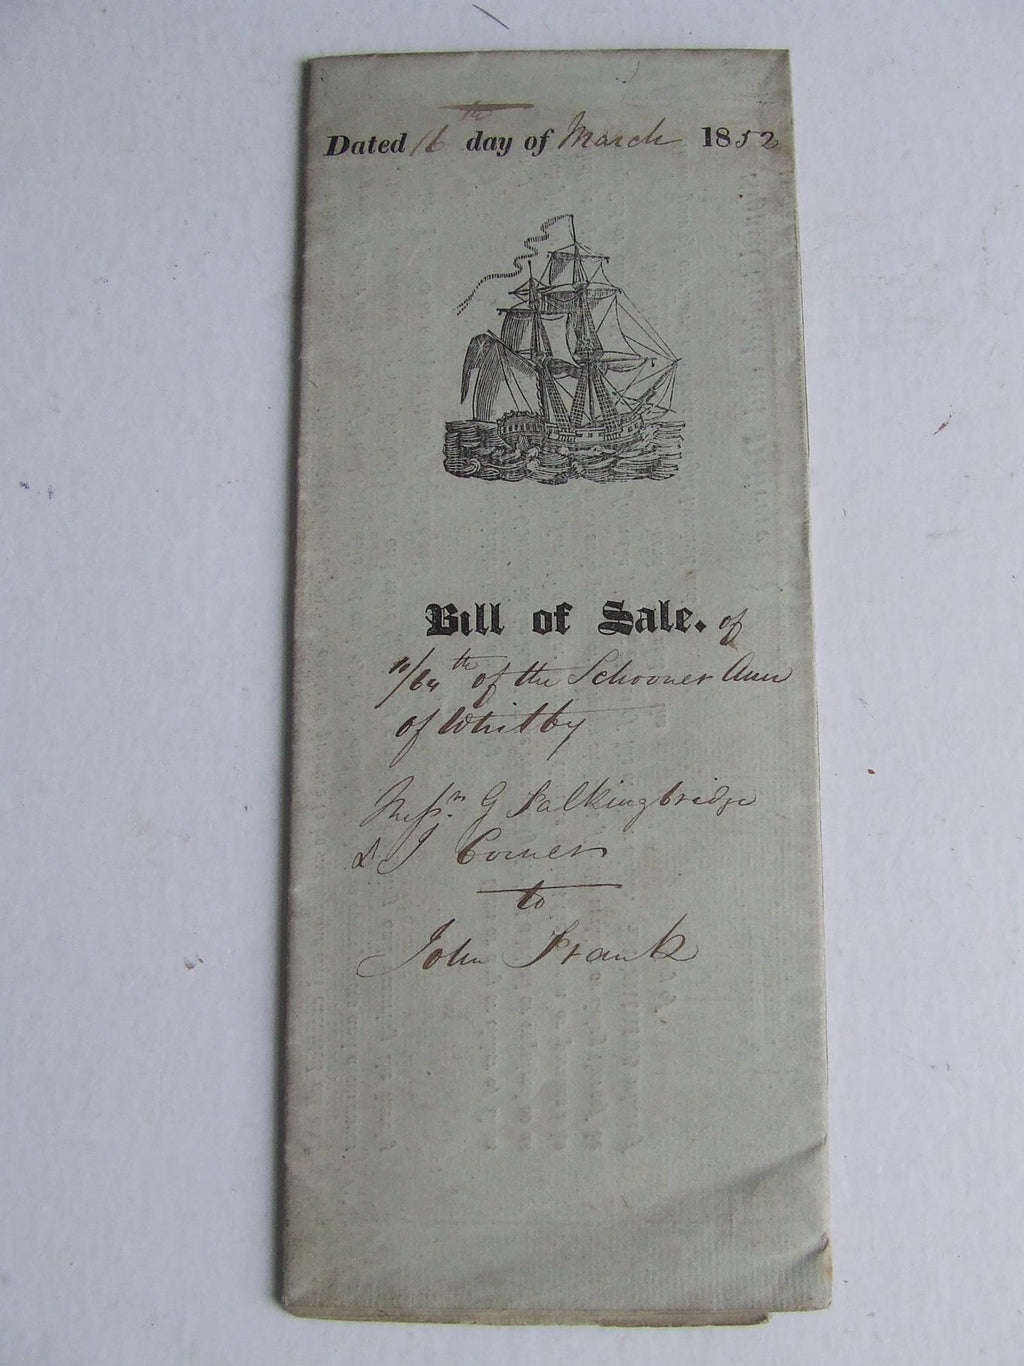 Dated 16th day of March 1852
Bill of Sale. of
/64th of the Schooner Ann
of Whitby
Messrs G Falkingbridge
& J Corner
to
John Frank